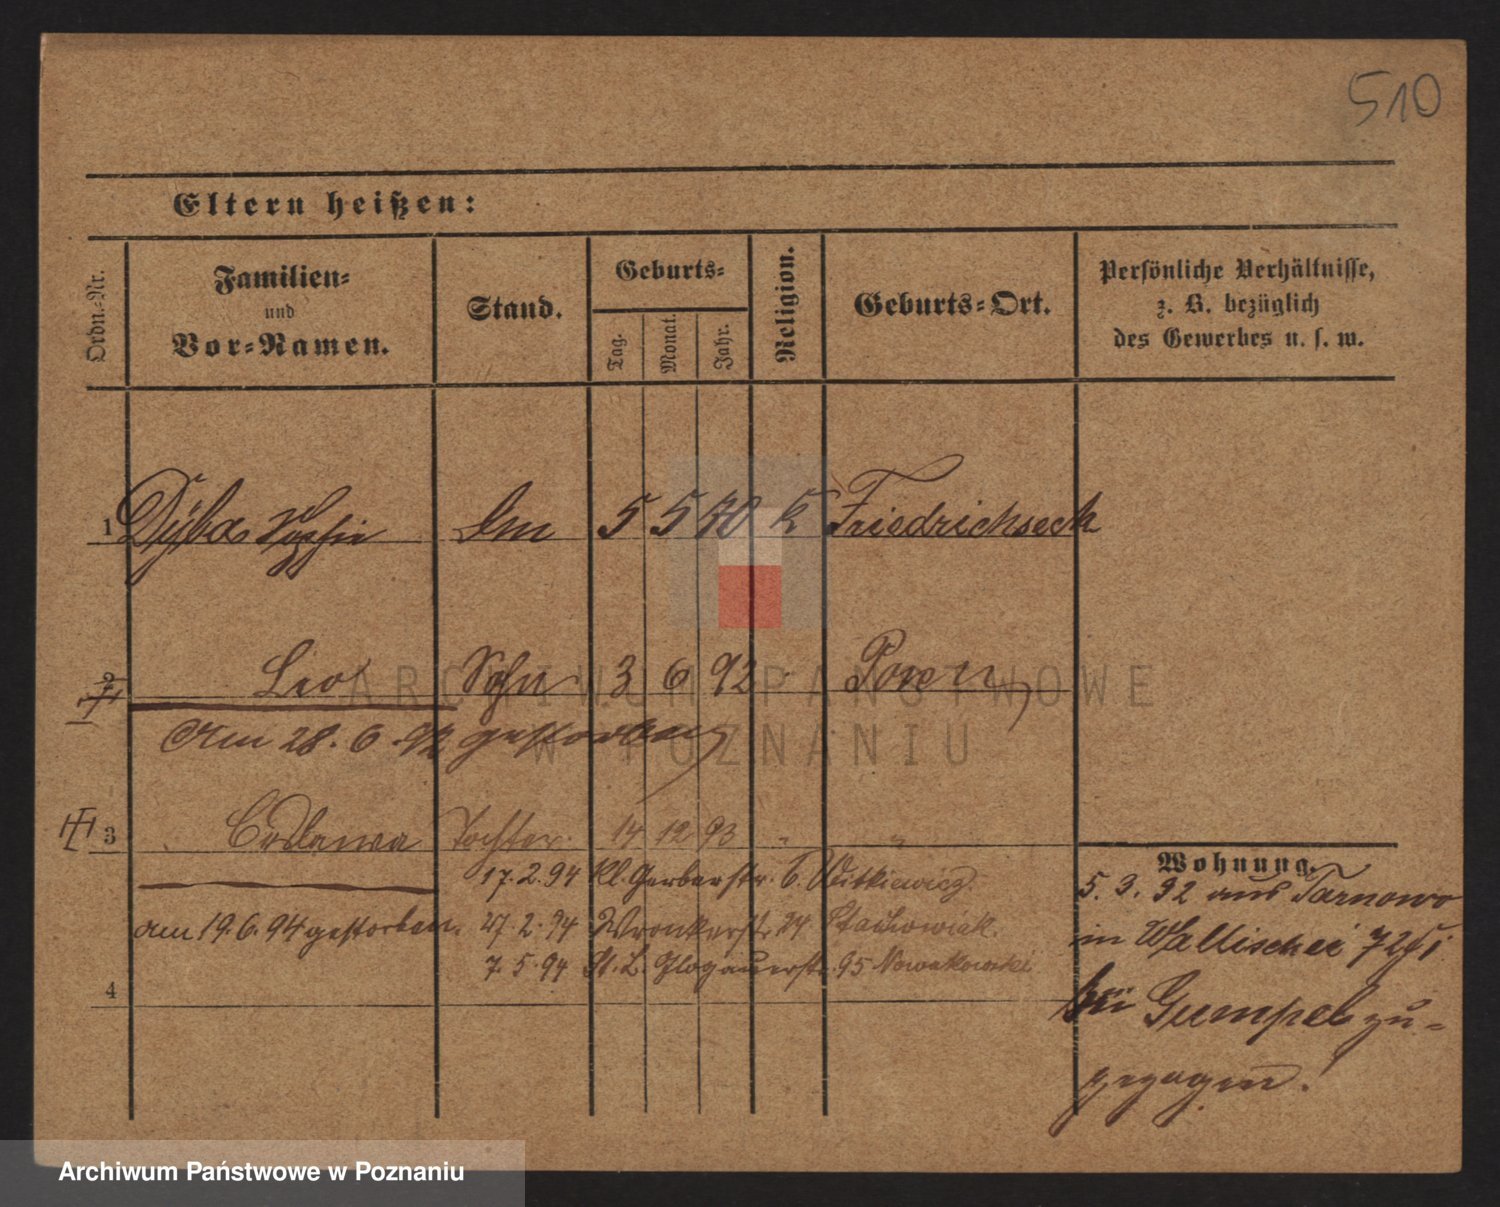 510
Eltern heißen:
Ordn.-Nr.
Familien-
und
Vor-Namen.
Stand.
Geburts-
Tag.
Monat.
Jahr.
Religion.
Geburts-Ort.
Persönliche Verhältnisse,
z. B. bezüglich
des Gewerbes u. s. w.
1 Dyba Sophie 5 5 70 k Friedrichseck
2 Leo Sohn 3 6 92 Posen
Am 28. 6. 92 gestorben
3 Tochter 14 12 93 " "
17. 2. 94 Kl. Gerberstr. 6. Witkiewicz.
am 19. 6. 94 gestorben. 27. 2. 94 Wronkerstr. 24 Stachowiak.
7. 5. 94 St. L. Glogauerstr. 95 Nowakowski
4
Wohnung.
5. 3. 92 aus Tarnowo
in Wallischei
bei Gumpel zu-
gezogen.
ARCHIWUM PAŃSTWOWE
W POZNANIU
Archiwum Państwowe w Poznaniu